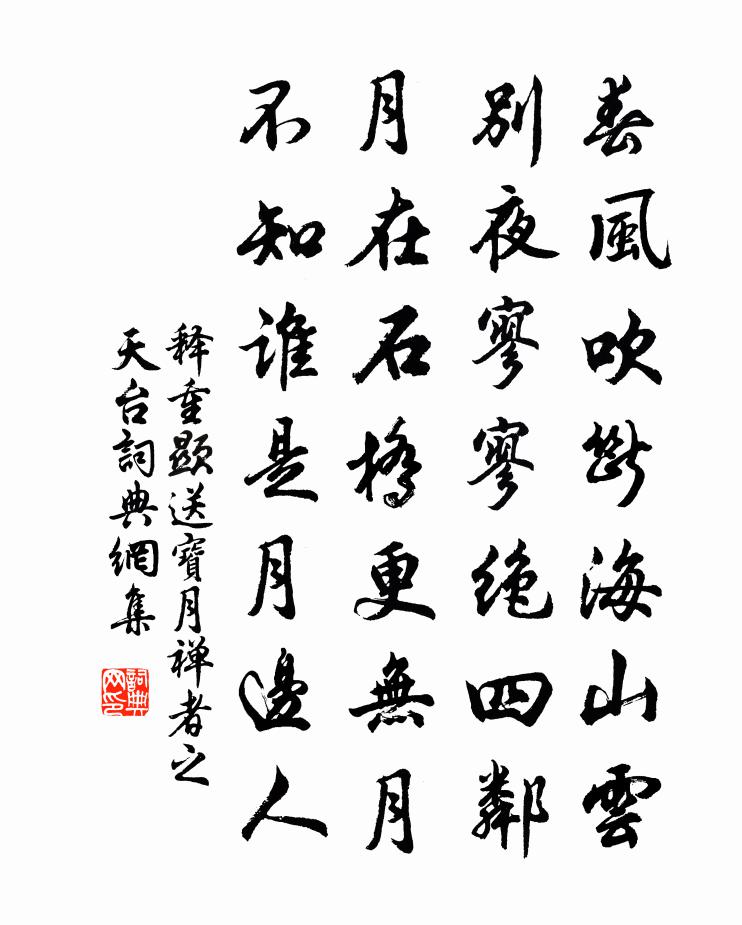 春風吹斷海山雲
別夜寥寥絶四鄰
月在石橋更無月
不知誰是月邊人
释重顯送寶月禅者之
天台詞典網集
詞典
网印